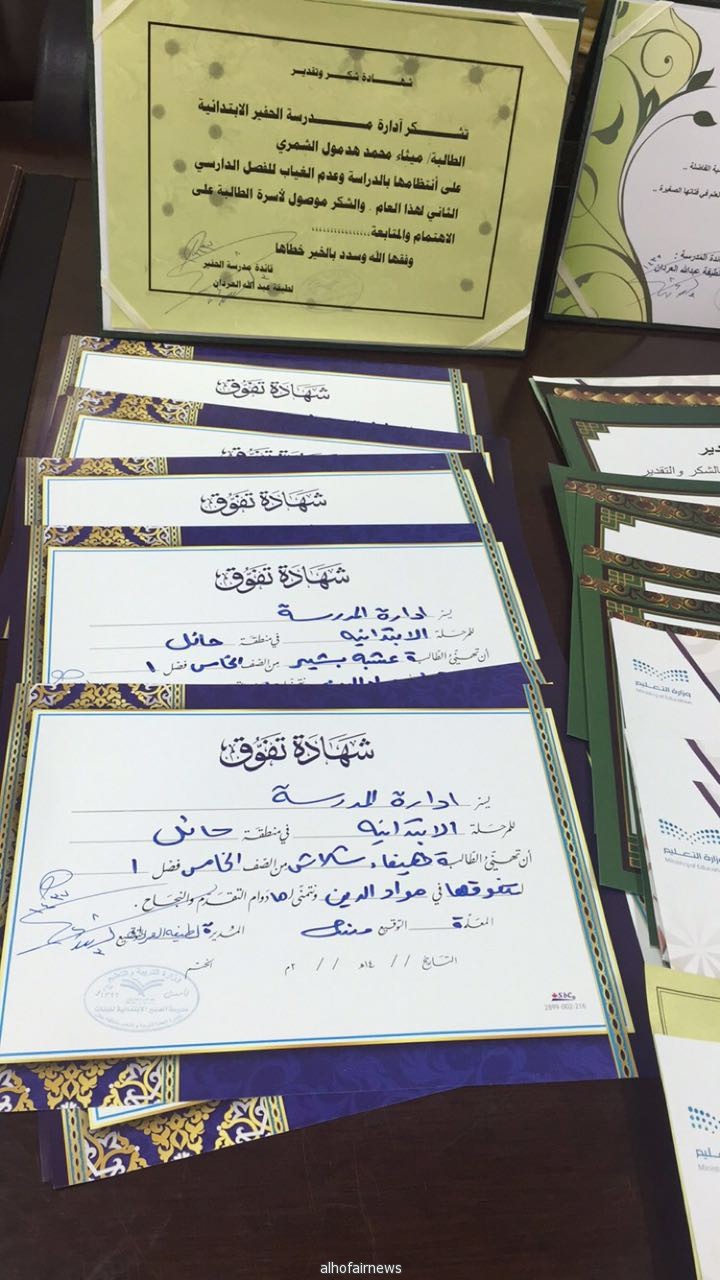 شهادة شكر وتقدير
تشكر أدارة مدرسة الحفير الابتدائية
الطالبة/ ميثاء محمد هدمول الشمري
على أنتظامها بالدراسة وعدم الغياب للفصل الدارسي
الثاني لهذا العام . والشكر موصول لأسرة الطالبة على
الاهتمام والمتابعة................
وفقها الله وسدد بالخير خطاها
قائدة مدرسة الحفير
لطيفة عبد الله العردان
ية الفاضلة ..
لعلم في فتاتها الصغيرة ..
ئدة المدرسة :
لطيفة عبدالله العردان
شهادة تفوق
شهادة تفوق
شهادة تفوق
شهادة تفوق
يسر ادارة المدرسة
للمرحلة الابتدائية في منطقة حائل
أن تهنئ الطالبة عشبه بشير من الصف الخامس فصل ١
شهادة تفوق
يسر ادارة المدرسة
للمرحلة الابتدائية في منطقة حائل
أن تهنئ الطالبة هيفاء شلاش من الصف الخامس فصل ١
لتفوقها في مواد الدين ونتمنى لها دوام التقدم والنجاح .
المعلمة التوقيع منى المديرة لطيفه العردان التوقيع
التاريخ / / ١٤هـ / / ٢م الختم
وزارة التربية والتعليم
مدرسة الحفير الابتدائية للبنات
SDC
2899-002-216
دير
بالشكر والتقدير
وزارة التعليم
Ministry of Education
وزارة التعليم
Ministry of Educa
alhofairnews